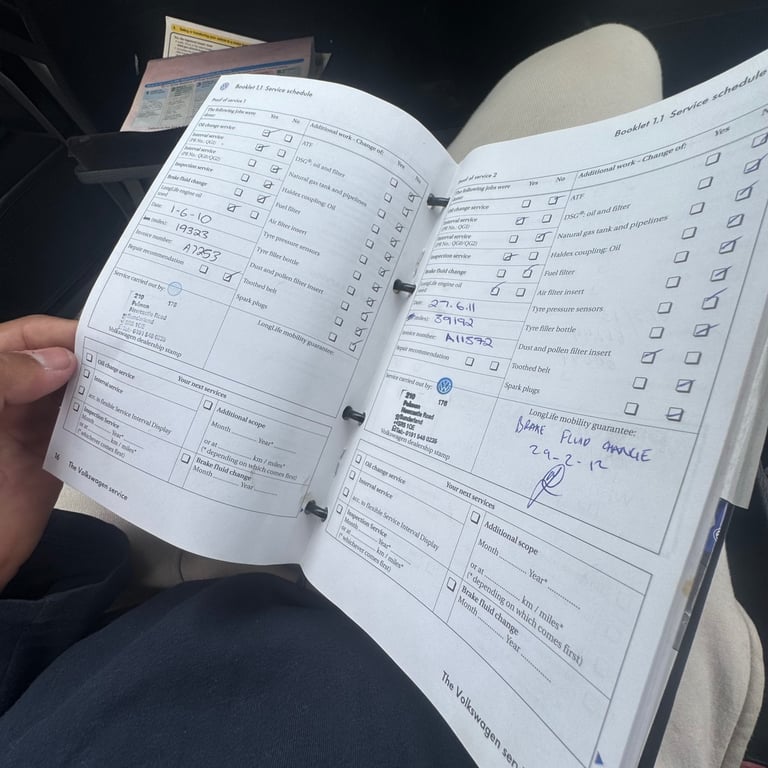 Booklet 1.1 Service schedule
Proof of service 1
The following jobs were done:
Yes
No
Additional work - Change of:
Yes
No
Oil change service
ATF
Interval service
(PR No.: QG1)
DSG®: oil and filter
Interval service
(PR No.: QG0/QG2)
Natural gas tank and pipelines
Inspection service
Haldex coupling: Oil
Brake fluid change
Fuel filter
LongLife engine oil used
Air filter insert
Date: 1-6-10
Tyre pressure sensors
(miles): 19323
Tyre filler bottle
Invoice number: A7253
Dust and pollen filter insert
Repair recommendation
Toothed belt
Spark plugs
Service carried out by:
LongLife mobility guarantee:
210 178
Pulman
Newcastle Road
Sunderland
Volkswagen dealership stamp
Your next services
Oil change service
Interval service
acc. to flexible Service Interval Display
Inspection Service
Month ........ Year*
or at ........ km / miles*
(* whichever comes first)
Additional scope
Month ........ Year*
or at ........ km / miles*
(* depending on which comes first)
Brake fluid change
Month ........ Year ........
16 The Volkswagen service
Booklet 1.1 Service schedule
Proof of service 2
The following jobs were
Yes
No
Additional work - Change of:
Yes
Oil change service
ATF
Interval service
(PR No.: QG1)
DSG®: oil and filter
Interval service
(PR No.: QG0/QG2)
Natural gas tank and pipelines
Inspection service
Haldex coupling: Oil
Brake fluid change
Fuel filter
LongLife engine oil used
Air filter insert
Date: 27.6.11
Tyre pressure sensors
miles): 39192
Tyre filler bottle
Invoice number: A11572
Dust and pollen filter insert
Repair recommendation
Toothed belt
Spark plugs
Service carried out by:
LongLife mobility guarantee:
210 178
Pulman
Newcastle Road
Sunderland
SR5 1QE
Tel: 0191 548 0235
Volkswagen dealership stamp
BRAKE FLUID CHANGE
29-2-12
Your next services
Oil change service
Interval service
acc. to flexible Service Interval Display
Inspection Service
Month ........ Year*
or at ........ km / miles*
(* whichever comes first)
Additional scope
Month ........ Year* ........
or at ........ km / miles*
(* depending on which comes first)
Brake fluid change
Month ........ Year ........
The Volkswagen serv